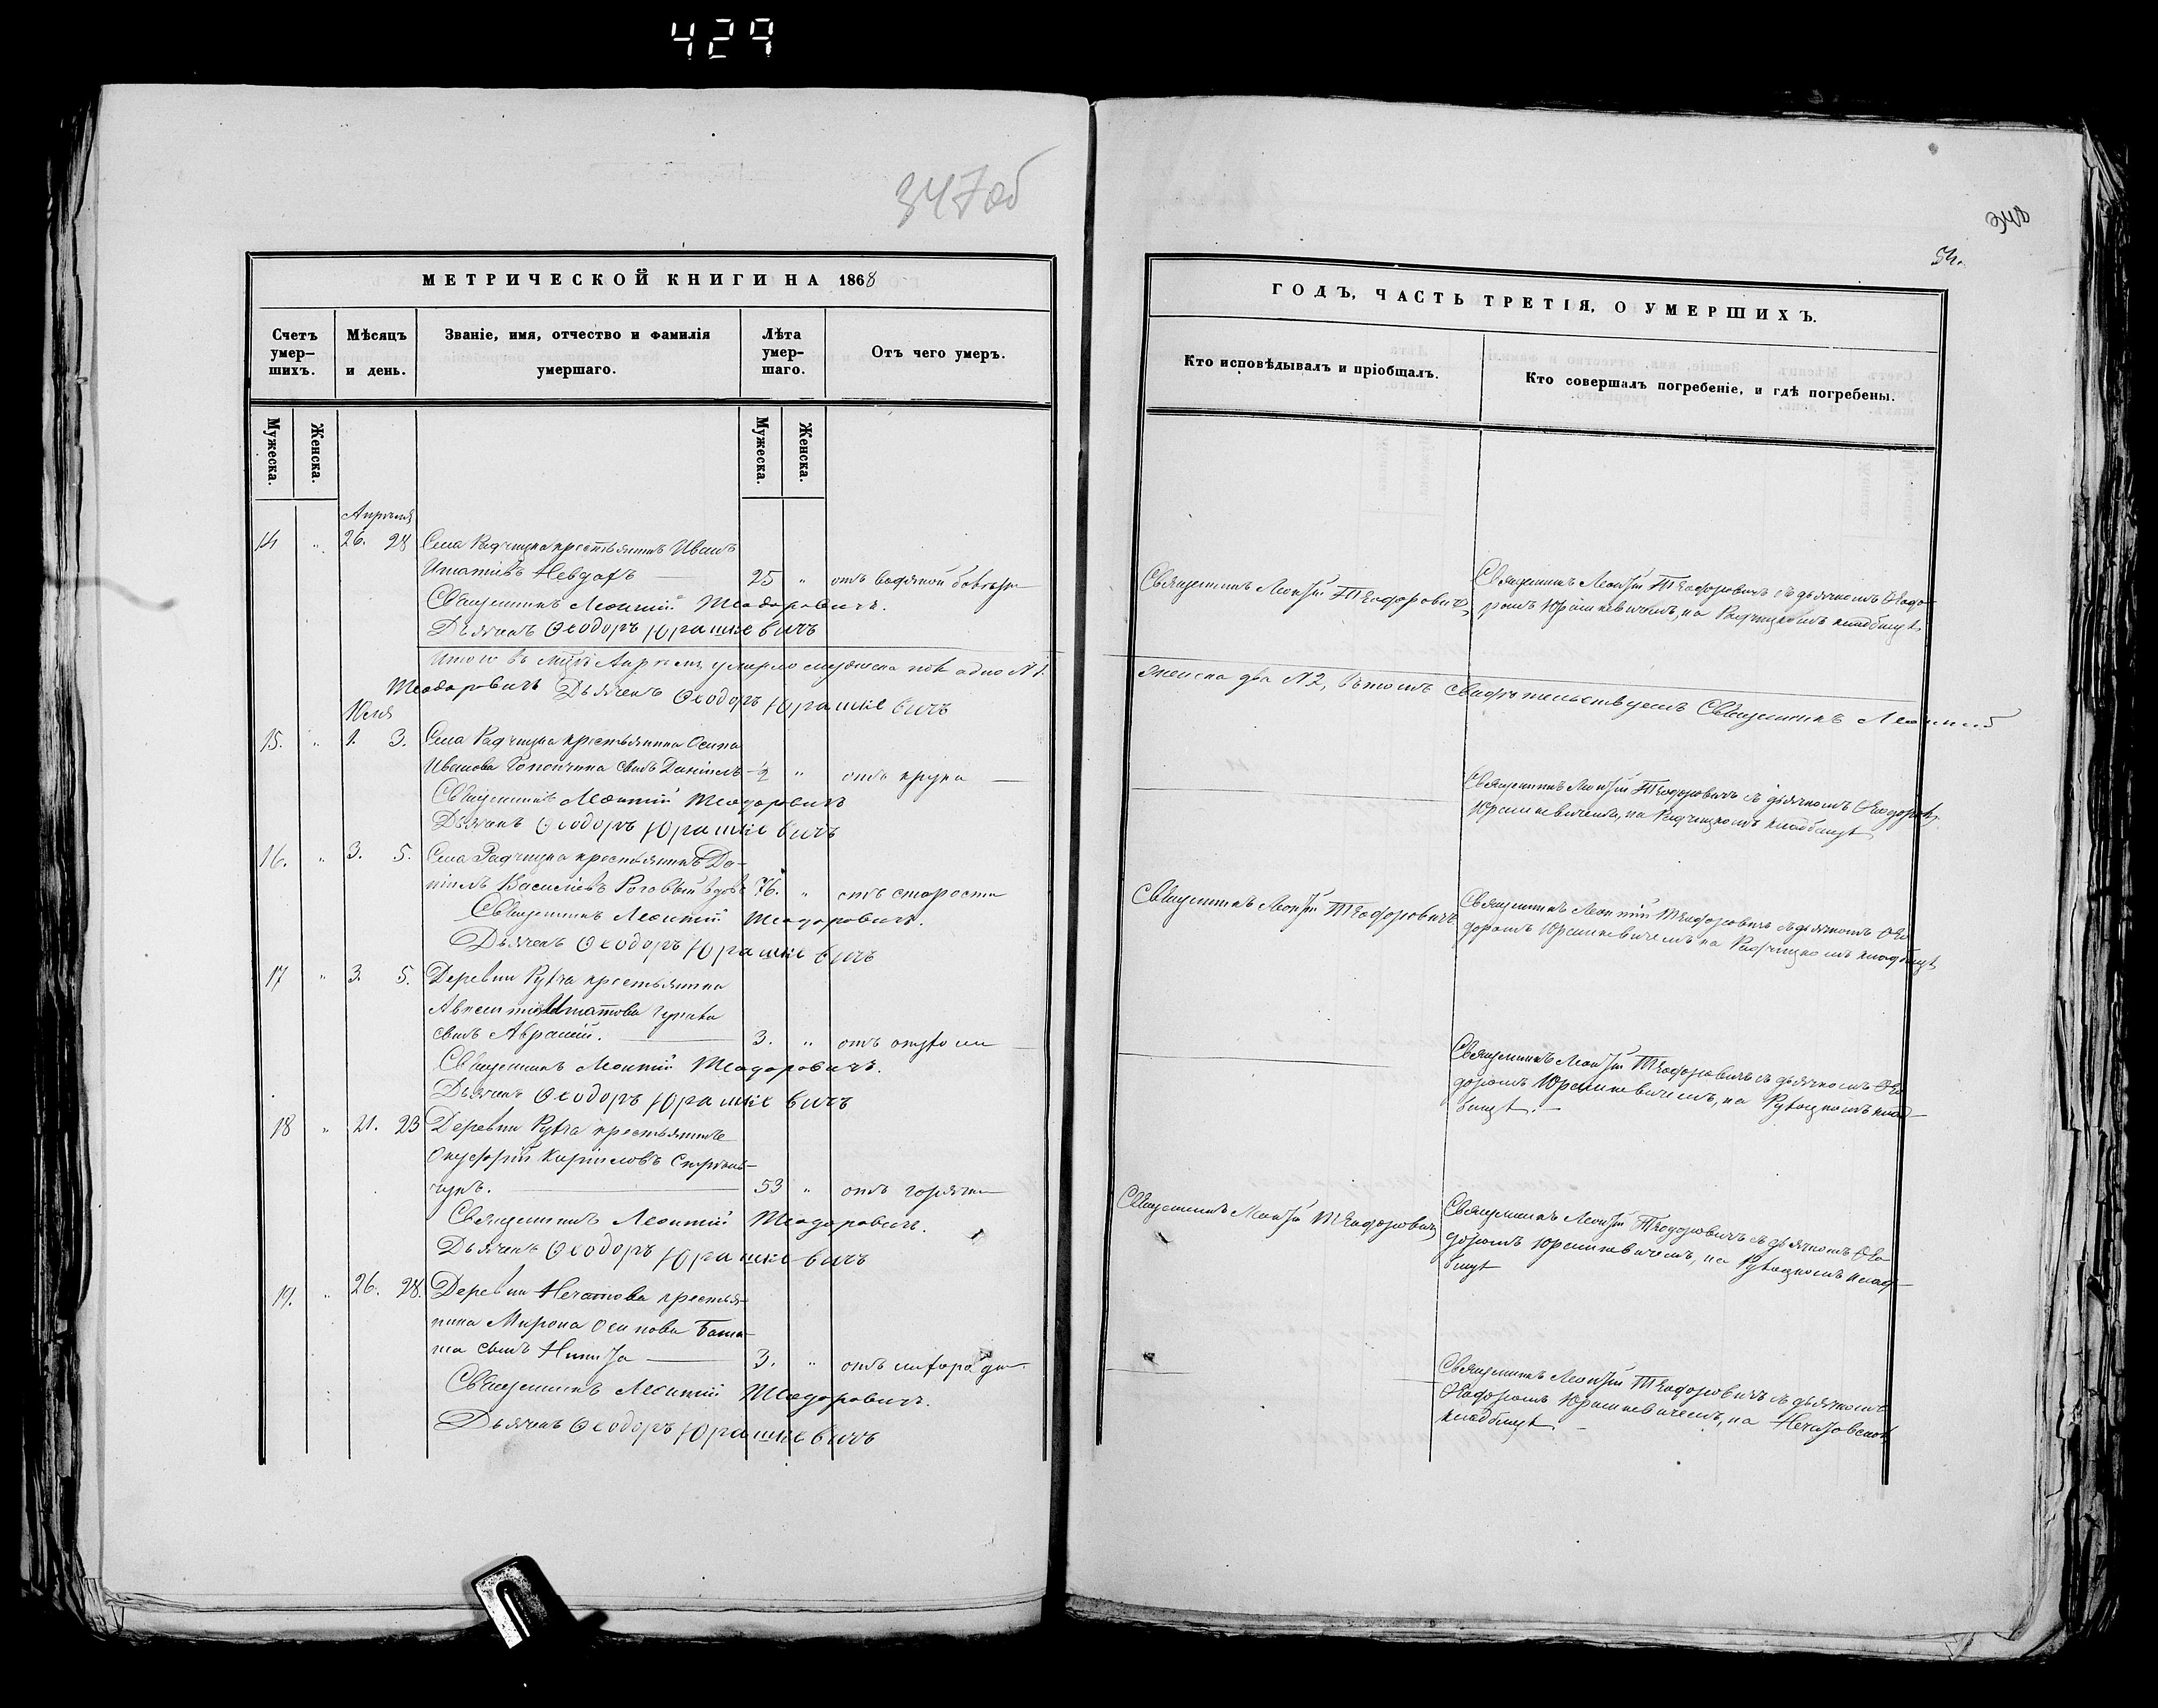 429
347об
348
54.
МЕТРИЧЕСКОЙ КНИГИ НА 1868
Счетъ умер-шихъ.
Мѣсяцъ и день.
Званіе, имя, отчество и фамилія умершаго.
Лѣта умер-шаго.
Отъ чего умеръ.
Мужеска.
Женска.
Мужеска.
Женска.
Апрѣля
14 " 26. 28 Села Радчицка крестьянинъ Иванъ
Игнатіевъ Невдахъ — 25 " отъ водяной болѣзни
Священникъ Леонтій Теодоровичъ.
Дьячекъ Ѳеодоръ Юрашкевичъ
Итого въ мцѣ Апрѣлѣ умерло мужеска пола одно №1.
Теодоровичъ Дьячекъ Ѳеодоръ Юрашкевичъ
15. " 1. 3. Села Радчицка крестьянина Осипа
Иванова сынъ Даніилъ — ½ " отъ крупа —
Священникъ Леонтій Теодоровичъ
Дьячекъ Ѳеодоръ Юрашкевичъ
16. " 3. 5. Села Радчицка крестьянинъ Да-
ніилъ Василіевъ вдовъ 76. " отъ старости
Священникъ Леонтій Теодоровичъ.
Дьячекъ Ѳеодоръ Юрашкевичъ
17 " 3. 5. Деревни Рубча крестьянина
Игнатова
сынъ Аврамій. — 3. " отъ
Священникъ Леонтій Теодоровичъ.
Дьячекъ Ѳеодоръ Юрашкевичъ
18 " 21. 23 Деревни Рубча крестьянинъ
Онуфрій Кирилловъ
чукъ. — 53 " отъ горячки
Священникъ Леонтій Теодоровичъ.
Дьячекъ Ѳеодоръ Юрашкевичъ
19. " 26. 28. Деревни Нечатова крестья-
нина Мирона Осипова
сынъ Никита — 3. " отъ
Священникъ Леонтій Теодоровичъ.
Дьячекъ Ѳеодоръ Юрашкевичъ
ГОДЪ, ЧАСТЬ ТРЕТІЯ, О УМЕРШИХЪ.
Кто исповѣдывалъ и пріобщалъ.
Кто совершалъ погребеніе, и гдѣ погребены.
Священникъ Леонтій Теодоровичъ
Священникъ Леонтій Теодоровичъ съ дьячкомъ Ѳеодо-
ромъ Юрашкевичемъ, на Радчицкомъ кладбищѣ
женска два №2, въ томъ свидѣтельствуемъ Священникъ Леонтій
Священникъ Леонтій Теодоровичъ съ дьячкомъ Ѳеодоромъ
Юрашкевичемъ, на Радчицкомъ кладбищѣ
Священникъ Леонтій Теодоровичъ
Священникъ Леонтій Теодоровичъ съ дьячкомъ Ѳео-
доромъ Юрашкевичемъ на Радчицкомъ кладбищѣ
Священникъ Леонтій Теодоровичъ съ дьячкомъ Ѳео-
доромъ Юрашкевичемъ, на клад-
бищѣ. —
Священникъ Леонтій Теодоровичъ
Священникъ Леонтій Теодоровичъ съ дьячкомъ Ѳео-
доромъ Юрашкевичемъ, на клад-
бищѣ
Священникъ Леонтій Теодоровичъ съ дьячкомъ
Ѳеодоромъ Юрашкевичемъ, на Нечатовскомъ
кладбищѣ. —